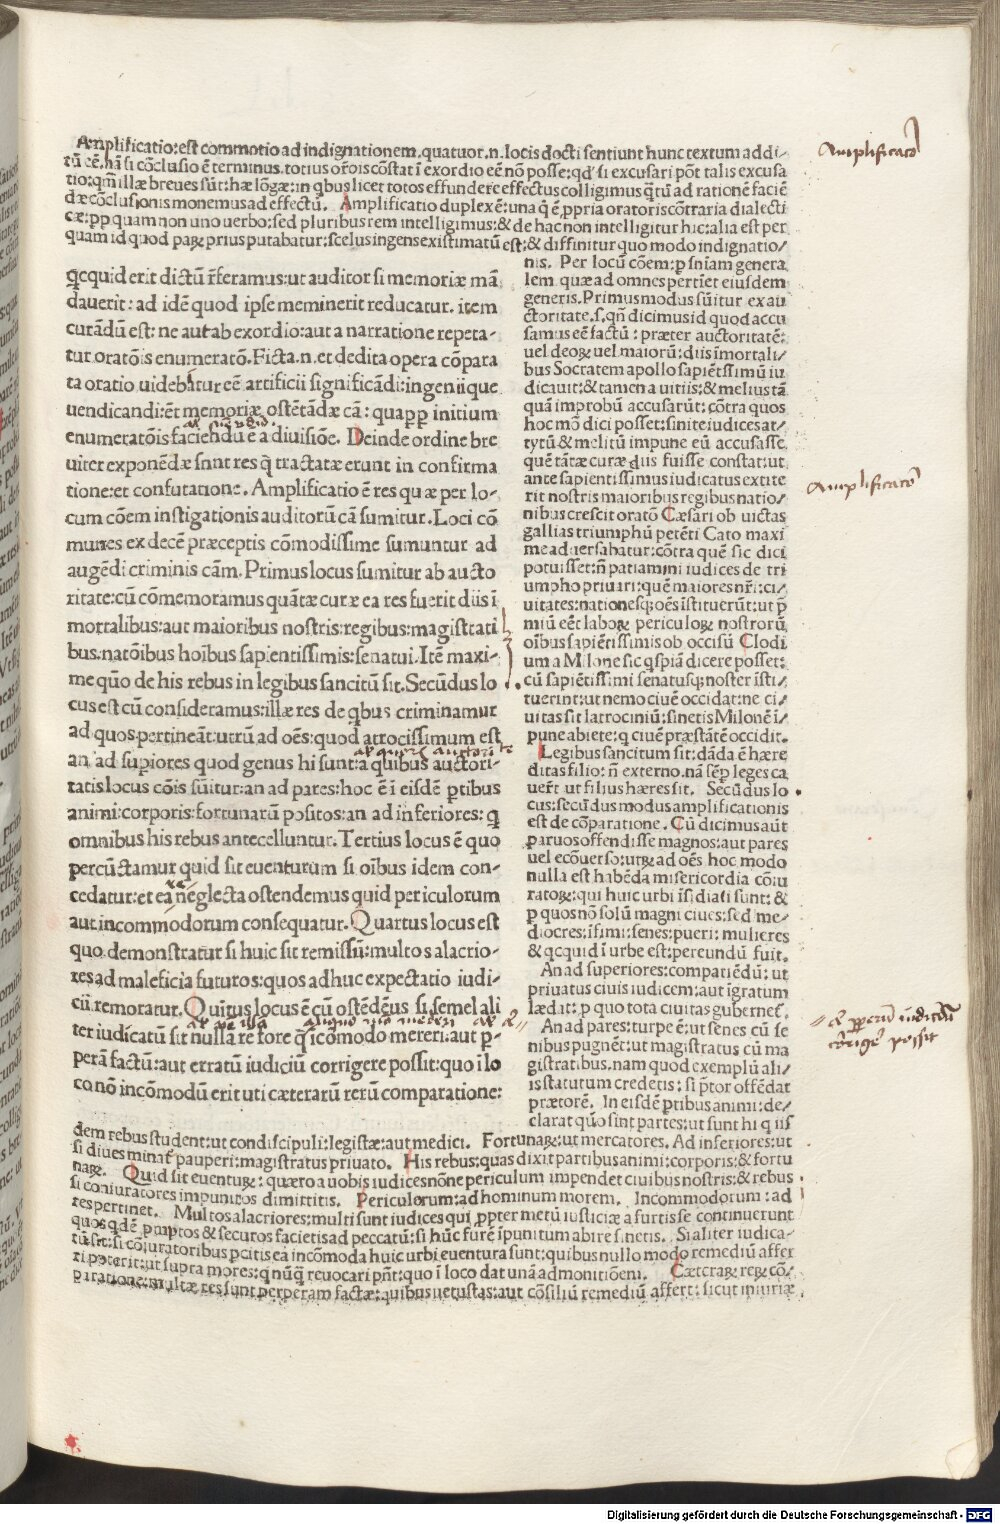 Amplificatio: est commotio ad indignationem. quatuor .n. locis docti sentiunt hunc textum addi-
tũ cẽ. nã si cõclusio ẽ terminus. totius orõis cõstat ĩ exordio eẽ nõ posse: qd' si excusari põt talis excusa
tio: qm̃ illæ breves sũt: hæ lõgæ: in qbus licet totos effundere effectus colligimus q̃tũ ad rationẽ faciẽ
dæ cõclusionis monemus ad effectũ. Amplificatio duplex ẽ: una q̃ ẽ ꝓpria oratoris cõtraria dialecti
cæ: ꝑ quam non uno uerbo: sed pluribus rem intelligimus: & de hac non intelligitur hic: alia est per
quam id quod paꝝ prius putabatur: scelus ingens existimatũ est: & diffinitur quo modo indignatio/
qcquid erit dictũ r̃feramus: ut auditor si memoriæ mã
dauerit: ad idẽ quod ipse meminerit reducatur. item
curãdũ est: ne aut ab exordio: aut a narratione repeta-
tur oratõis enumeratõ. Ficta .n. et dedita opera cõpara
ta oratio uidebitur eẽ artificii significãdi: ingenii que
uendicandi: ẽt memoriæ ostẽtãdæ cã: quapp̱ initium
enumeratõis faciẽdũ ẽ a diuisiõe. Deinde ordine bre
uiter exponẽdæ snnt res q̃ tractatæ erunt in confirma
tione: et confutatione. Amplificatio ẽ res quæ per lo-
cum cõem instigationis auditorũ cã sumitur. Loci cõ
munes ex decẽ præceptis cõmodissime sumuntur ad
augẽdi criminis cãm. Primus locus sumitur ab aucto
ritate: cũ cõmemoramus quãtæ curæ ea res fuerit diis ĩ
mortalibus: aut maioribus nostris: regibus: magistrati
bus. natõibus hoĩbus sapientissimis: senatui. Itẽ maxi-
me qũo de his rebus in legibus sancitũ sit. Secũdus lo
cus est cũ consideramus: illæ res de qbus criminamur
ad quos pertineãt: utrũ ad oẽs: quod atrocissimum est
an ad supiores quod genus hi sunt: a quibus auctori-
tatis locus cõis sũitur: an ad pares: hoc ẽ ĩ eisdẽ ꝑtibus
animi: corporis: fortunarũ positos: an ad inferiores: q
omnibus his rebus antecelluntur. Tertius locus ẽ quo
percũctamur quid sit euenturum si oĩbus idem con-
cedatur: et eã neglecta ostendemus quid periculorum
aut incommodorum consequatur. Quartus locus est
quo demonstratur si huic sit remissũ: multos alacrio-
res ad maleficia futuros: quos adhuc expectatio iudi-
cii remoratur. Quĩtus locus ẽ cũ ostẽdẽus si semel ali
ter iudicatũ sit nulla re fore q̃ ĩcõmodo mereri: aut ꝑ-
perã factũ: aut erratũ iudiciũ corrigere possit: quo ĩ lo
co nõ incõmodũ erit uti cæterarũ rerũ comparatione:
nis. Per locũ cõem: ꝑ sñiam genera
lem quæ ad omnes pertiẽt eiusdem
generis. Primus modus sũitur ex au
ctoritate .s. qñ dicimus id quod accu
samus eẽ factũ: præter auctoritatẽ:
uel deoꝝ uel maiorũ: diis ĩmortali/
bus Socratem apollo sapiẽtissimũ iu
dicauit: & tamen a uitiis: & melius tã
quã improbũ accusarũt: cõtra quos
hoc mõ dici posset: sinite iudices at/
tytũ & melitũ impune eũ accusasse
quẽ tãtæ curæ diis fuisse constat: ut
ante sapientissimus iudicatus extite
rit nostris maioribus regibus natio/
nibus crescit oratõ Cæsari ob uictas
gallias triumphũ petẽti Cato maxi
me aduersabatur: cõtra quẽ sic dici
potuisset: ñ patiamini iudices de tri
umpho priuari: quẽ maiores nr̃i: ci/
uitates: nationesq; oẽs ĩstituerũt: ut p̃
miũ eẽt laboꝝ periculoꝝ nostrorũ
oĩbus sapiẽtissimis ob occisũ Clodi
um a Milone sic qspiã dicere posset:
cũ sapiẽtissimi senatusq; noster ĩsti/
tuerint: ut nemo ciuẽ occidat: ne ci/
uitas sit latrociniũ: sinetis Milonẽ ĩ/
pune abire: q ciuẽ præstãtẽ occidit.
Legibus sancitum sit: dãda ẽ hære
ditas filio: ñ externo. nã sẽp leges ca
uer̃t ut filius hæres sit. Secũdus lo
cus: secũdus modus amplificationis
est de cõparatione. Cũ dicimus aũt
paruos offendisse magnos: aut pares
uel ecõuerso: utꝝ ad oẽs hoc modo
nulla est habẽda misericordia cõiu
ratoꝝ: qui huic urbi ĩsidiati sunt: &
ꝑ quos nõ solũ magni ciues: sed me/
diocres: ĩfimi: senes: pueri: mulieres
& qcquid ĩ urbe est: pereundũ fuit.
An ad superiores: compatiẽdũ: ut
priuatus ciuis iudicem: aut ĩgratum
lædat: ꝑ quo tota ciuitas gubernet̃.
An ad pares: turpe ẽ: ut senes cũ se
nibus pugnẽt: ut magistratus cũ ma
gistratibus. nam quod exemplũ ali/
is statutum credetis: si p̃tor offẽdat
prætorẽ. In eisdẽ ꝑtibus animi: de/
clarat quo sint partes: ut sunt hi q iis
dem rebus student: ut condiscipuli: legistæ: aut medici. Fortunaꝝ: ut mercatores. Ad inferiores: ut
si diues minat̃ pauperi: magistratus priuato. His rebus: quas dixit partibus animi: corporis: & fortu
naꝝ. Quid sit euentuꝝ: quæro a uobis iudices nõne periculum impendet ciuibus nostris: & rebus
si coniuratores impunitos dimittitis. Periculorum: ad hominum morem. Incommodorum: ad
res pertinet. Multos alacriores: multi sunt iudices qui ꝓpter metũ iusticiæ a furtis se continuerunt
quos qdẽ ꝓmptos & securos facietis ad peccatũ: si hũc furẽ ĩpunitum abire sinetis. Si aliter iudica-
tũ sit: si cõiuratoribus pcitis ea incõmoda huic urbi euentura sunt: quibus nullo modo remediũ affer
ri poterit: ut supra mores: q nũq̃ reuocari pñt: quo ĩ loco dat unã admonitiõem. Cæteraꝝ reꝝ cõ/
paratione: multæ res sunt perperam factæ: quibus uetustas: aut cõsiliũ remediũ affert: sicut iniuriæ
Amplificatõ
Amplificatõ
Digitalisierung gefördert durch die Deutsche Forschungsgemeinschaft - DFG